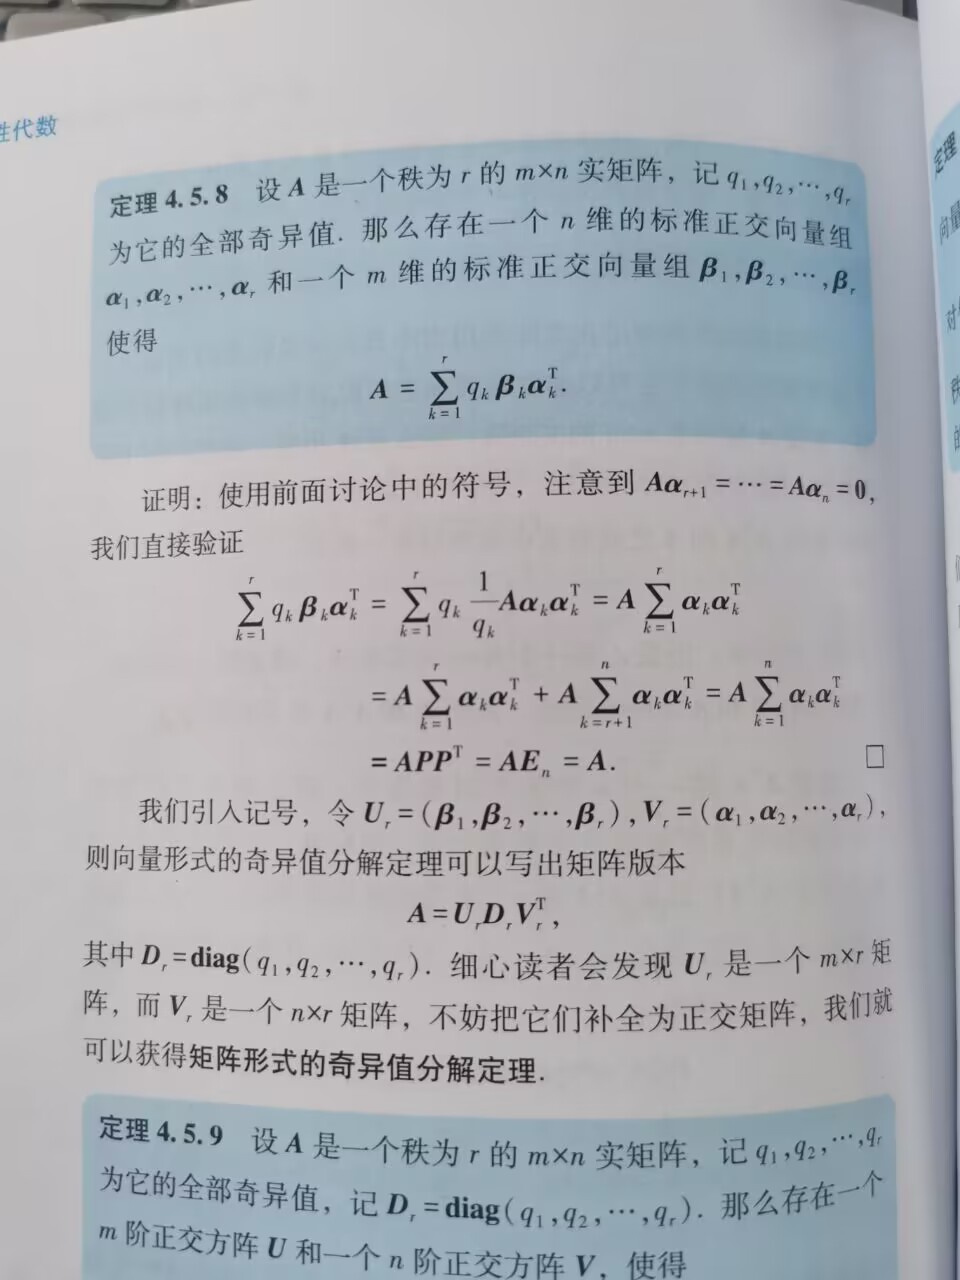 性代数
定理 4.5.8 设 A 是一个秩为 r 的 m×n 实矩阵，记 q₁,q₂,⋯,qᵣ
为它的全部奇异值. 那么存在一个 n 维的标准正交向量组
α₁,α₂,⋯,αᵣ 和一个 m 维的标准正交向量组 β₁,β₂,⋯,βᵣ
使得
A = ∑_{k=1}^{r} q_k β_k α_k^T.
证明：使用前面讨论中的符号，注意到 Aα_{r+1} = ⋯ = Aα_n = 0,
我们直接验证
∑_{k=1}^{r} q_k β_k α_k^T = ∑_{k=1}^{r} q_k \frac{1}{q_k} Aα_k α_k^T = A ∑_{k=1}^{r} α_k α_k^T
= A ∑_{k=1}^{r} α_k α_k^T + A ∑_{k=r+1}^{n} α_k α_k^T = A ∑_{k=1}^{n} α_k α_k^T
= APP^T = AE_n = A. □
我们引入记号，令 U_r = (β₁,β₂,⋯,β_r), V_r = (α₁,α₂,⋯,α_r),
则向量形式的奇异值分解定理可以写出矩阵版本
A = U_r D_r V_r^T,
其中 D_r = diag(q₁,q₂,⋯,q_r). 细心读者会发现 U_r 是一个 m×r 矩
阵，而 V_r 是一个 n×r 矩阵，不妨把它们补全为正交矩阵，我们就
可以获得矩阵形式的奇异值分解定理.
定理 4.5.9 设 A 是一个秩为 r 的 m×n 实矩阵，记 q₁,q₂,⋯,q_r
为它的全部奇异值，记 D_r = diag(q₁,q₂,⋯,q_r). 那么存在一个
m 阶正交方阵 U 和一个 n 阶正交方阵 V，使得
定理
向量